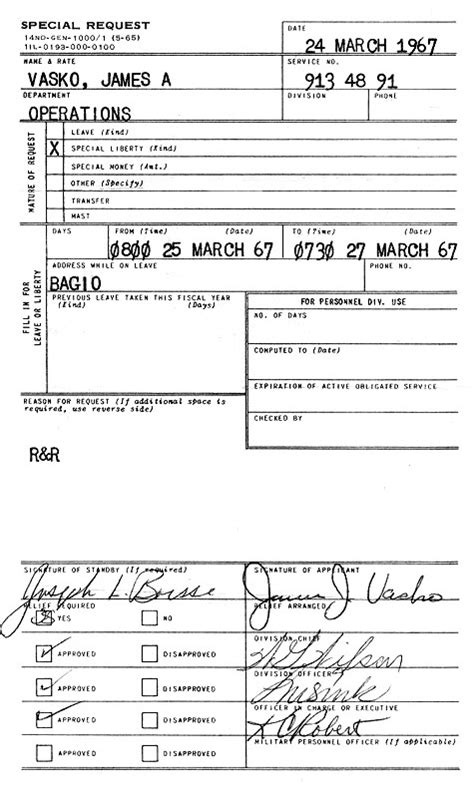 SPECIAL REQUEST
14ND-GEN-1000/1 (5-65)
11L-0193-000-0100
DATE
24 MARCH 1967
NAME & RATE
VASKO, JAMES A
SERVICE NO.
913 48 91
DEPARTMENT
OPERATIONS
DIVISION
PHONE
NATURE OF REQUEST
LEAVE (Kind)
X SPECIAL LIBERTY (Kind)
SPECIAL MONEY (Amt.)
OTHER (Specify)
TRANSFER
MAST
FILL IN FOR
LEAVE OR LIBERTY
DAYS
FROM (Time) (Date)
0800 25 MARCH 67
TO (Time) (Date)
0730 27 MARCH 67
ADDRESS WHILE ON LEAVE
BAGIO
PHONE NO.
PREVIOUS LEAVE TAKEN THIS FISCAL YEAR
(Kind) (Days)
FOR PERSONNEL DIV. USE
NO. OF DAYS
COMPUTED TO (Date)
EXPIRATION OF ACTIVE OBLIGATED SERVICE
CHECKED BY
REASON FOR REQUEST (If additional space is
required, use reverse side)
R&R
SIGNATURE OF STANDBY (If required)
Joseph L. Boisse
SIGNATURE OF APPLICANT
James J. Vasko
RELIEF REQUIRED
YES NO
RELIEF ARRANGED
APPROVED DISAPPROVED
DIVISION CHIEF
APPROVED DISAPPROVED
DIVISION OFFICER
APPROVED DISAPPROVED
OFFICER IN CHARGE OR EXECUTIVE
Robert
APPROVED DISAPPROVED
MILITARY PERSONNEL OFFICER (If applicable)